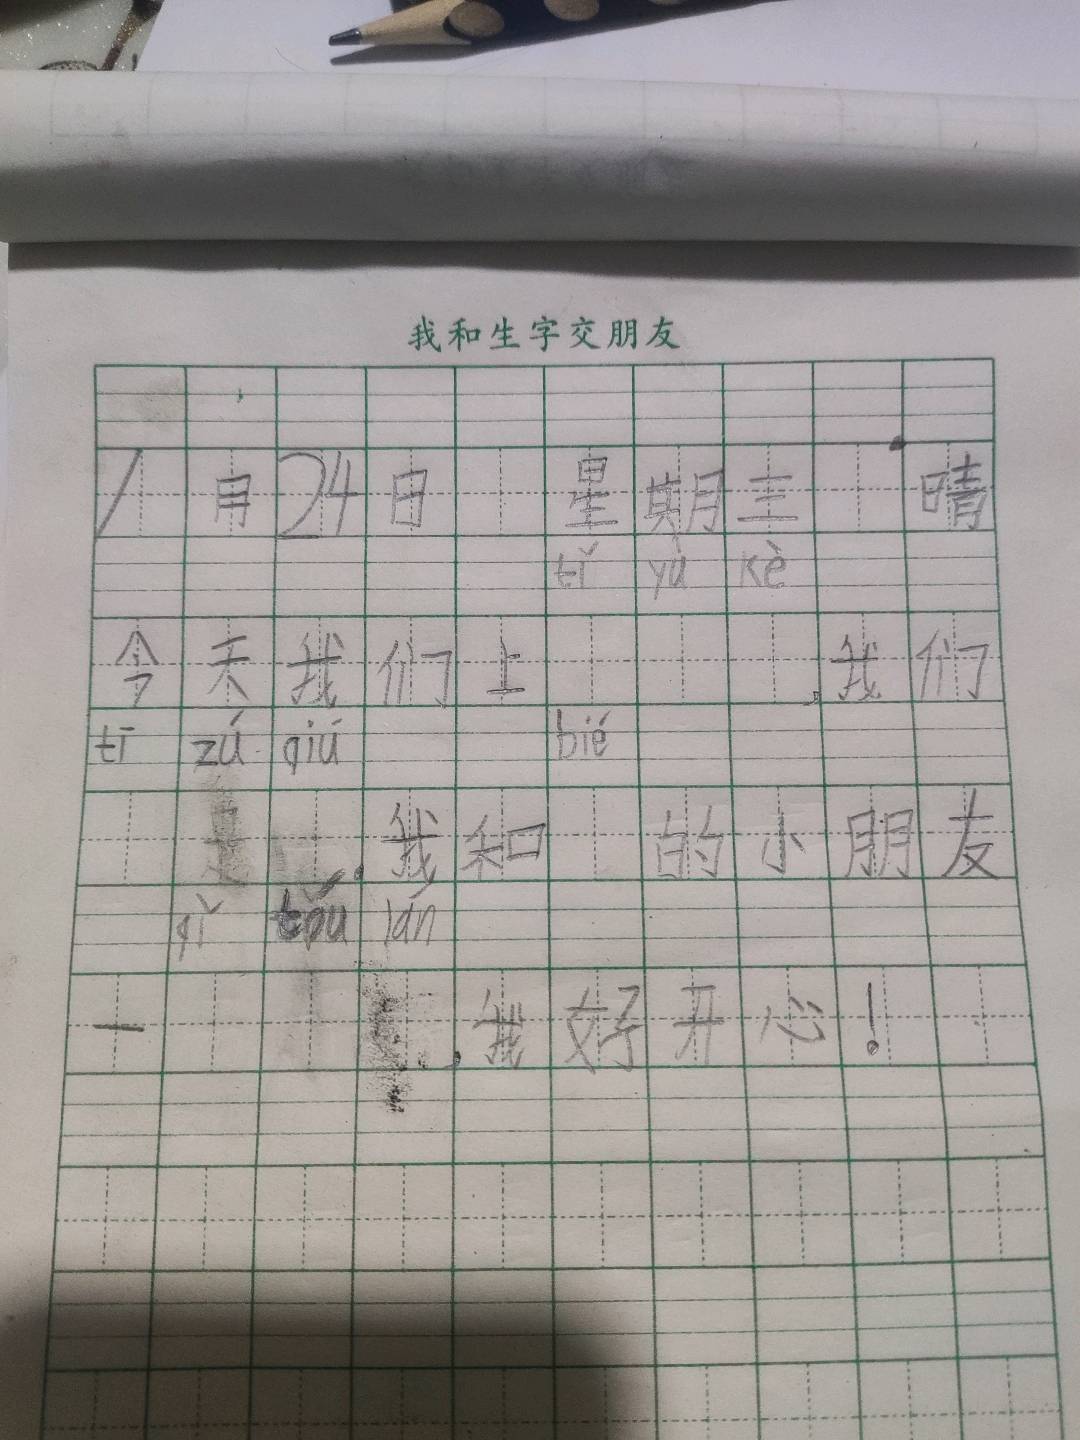 我和生字交朋友
1月24日 星期三 晴
tǐ yù kè
今天我们上 ,我们
tī zú qiú bié
,我和 的小朋友
qǐ tǒu lán
一 ,我好开心!